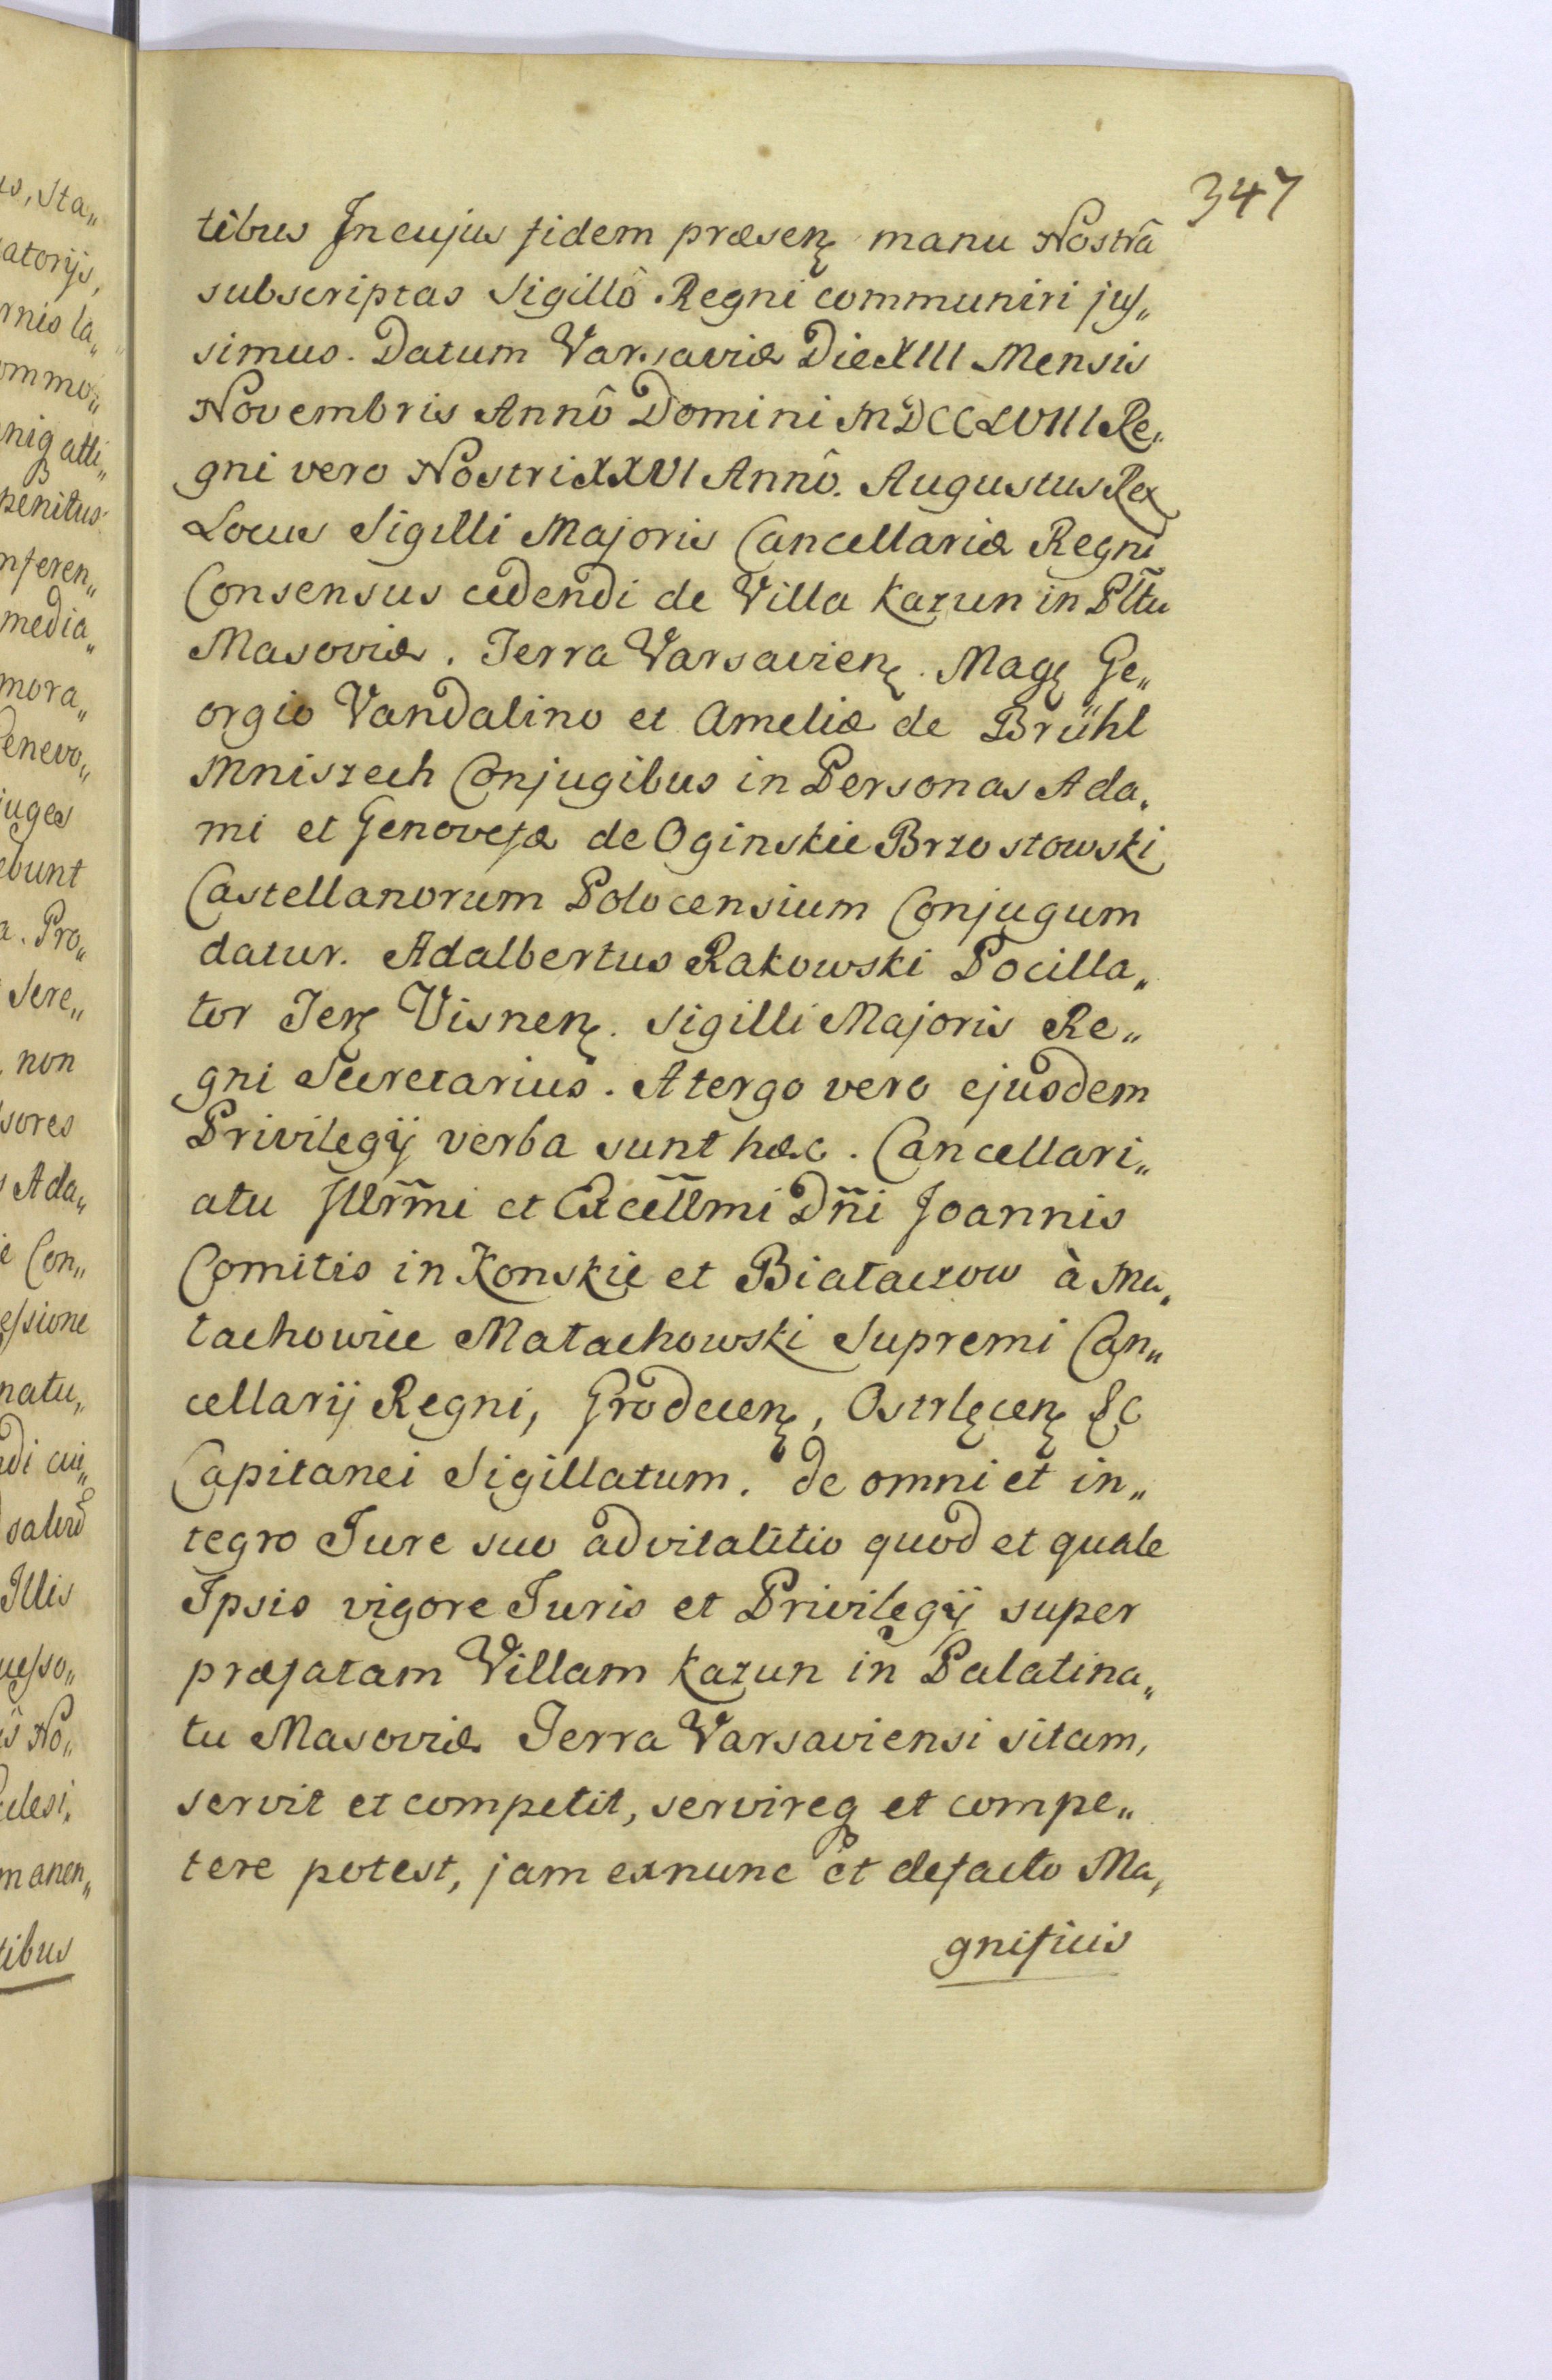 347
tibus In cujus fidem præsenꝫ manu Nostrâ
subscriptas Sigillô Regni communiri jus„
simus. Datum Varsaviæ Die XIII Mensis
Novembris Annô Domini MDCCLVIII Re„
gni vero Nostri XXVI Annô. Augustus Rex
Locus Sigilli Majoris Cancellariæ Regni
Consensus cedendi de Villa Kazun in Pltũ
Masoviæ. Terra Varsavienꝫ. Magꝫ Ge„
orgio Vandalino et Ameliæ de Brühl
Mniszech Conjugibus in Personas Ada„
mi et Genovefæ de Oginskie Brzostowski
Castellanorum Polocensium Conjugum
datur. Adalbertus Rakowski Pocilla„
tor Terꝫ Visnenꝫ. Sigilli Majoris Re„
gni Secretarius. A tergo vero ejusdem
Privilegij verba sunt hæc. Cancellari„
atu Illr̃mi et Excell̃mi Dñi Joannis
Comitis in Konskie et Białaczow à Ma„
łachowice Małachowski Supremi Can„
cellarij Regni, Grodecenꝫ, Ostrlęcenꝫ &c
Capitanei Sigillatum. de omni et in„
tegro Jure suo advitalitio quod et quale
Ipsis vigore Juris et Privilegij super
præfatam Villam Kazun in Palatina„
tu Masoviæ Terra Varsaviensi sitam,
servit et competit, servireq et compe„
tere potest, jam exnunc et defacto Ma„
gnificis